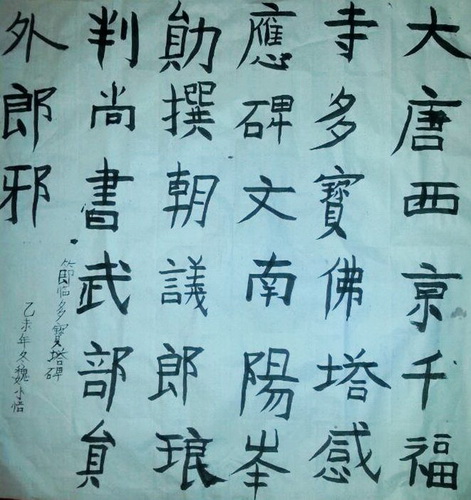 大唐西京千福
寺多寶佛塔感
應碑文南陽岑
勛撰朝議郎琅
判尚書武部員
外郎邪
節臨多寶塔碑
乙未年冬魏小悟